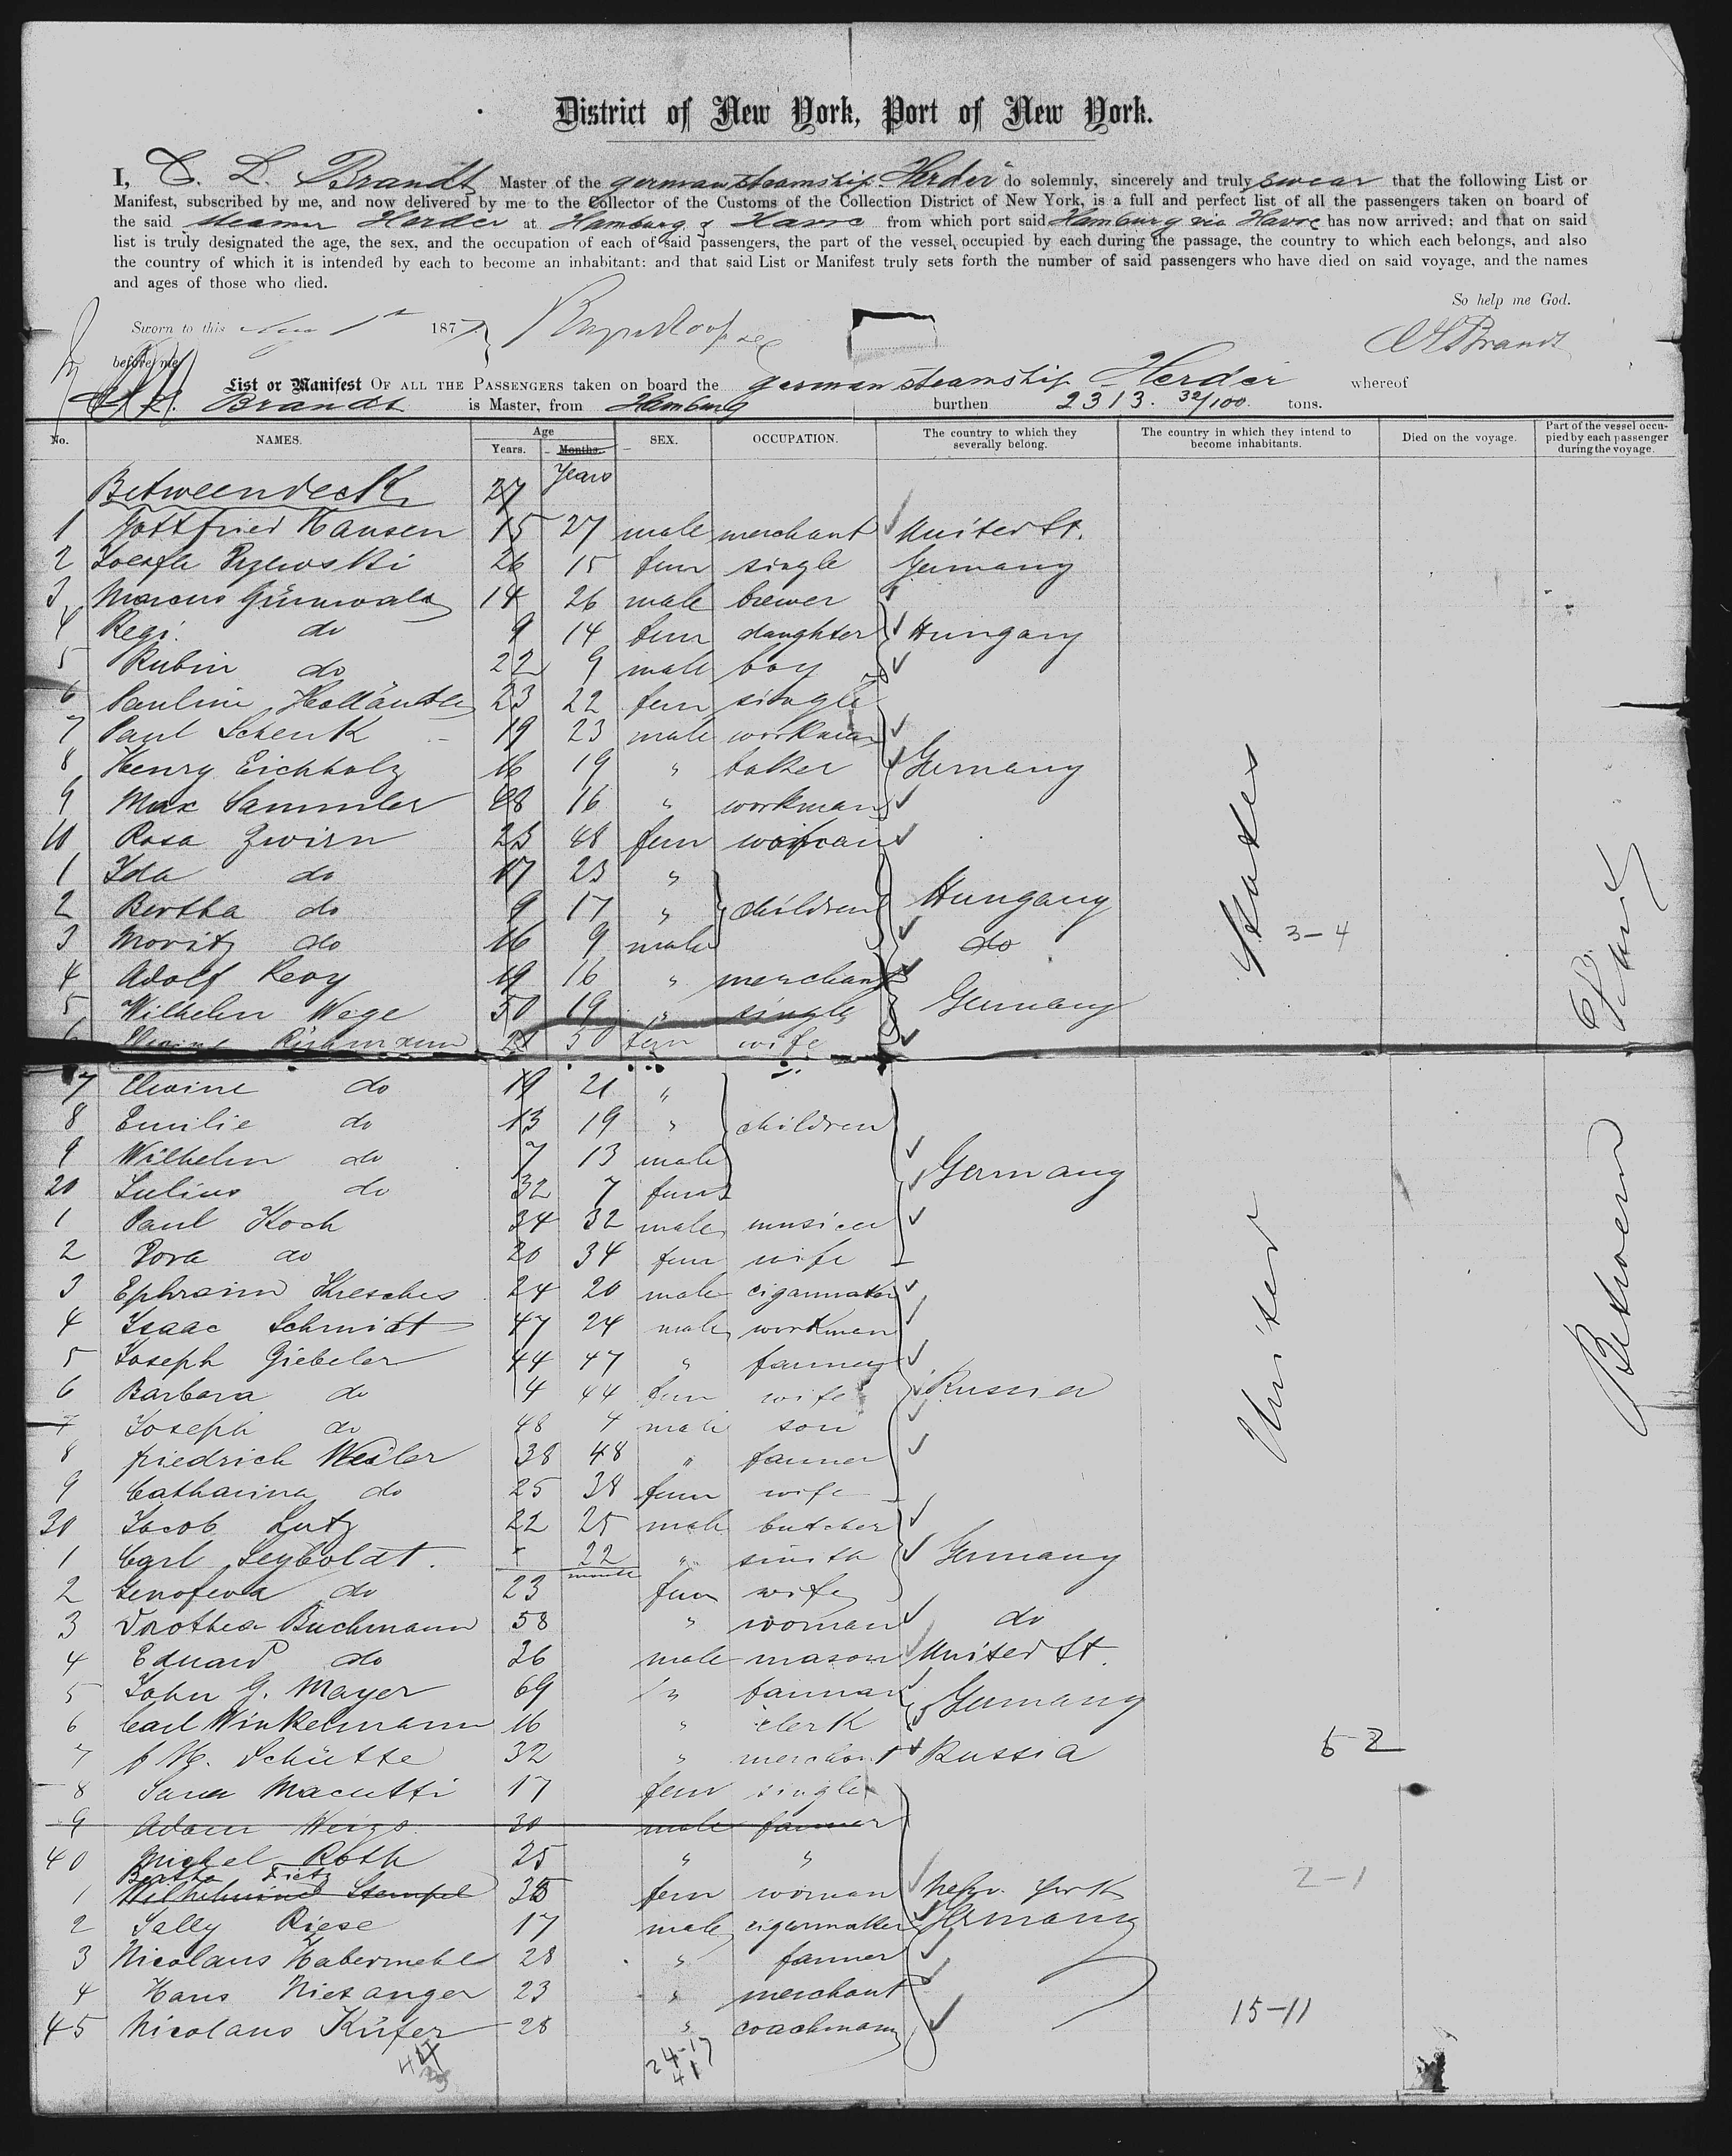 District of New York, Port of New York.
I, C. L. Brandt Master of the german steamship Herder do solemnly, sincerely and truly swear that the following List or
Manifest, subscribed by me, and now delivered by me to the Collector of the Customs of the Collection District of New York, is a full and perfect list of all the passengers taken on board of
the said steamer Herder at Hamburg & Havre from which port said Hamburg via Havre has now arrived; and that on said
list is truly designated the age, the sex, and the occupation of each of said passengers, the part of the vessel occupied by each during the passage, the country to which each belongs, and also
the country of which it is intended by each to become an inhabitant: and that said List or Manifest truly sets forth the number of said passengers who have died on said voyage, and the names
and ages of those who died.
So help me God.
Sworn to this 1st 187
Brandt
before me
List or Manifest OF ALL THE PASSENGERS taken on board the german steamship Herder whereof
Brandt is Master, from Hamburg burthen 2313. 32/100 tons.
No. NAMES. Age Years. Months. SEX. OCCUPATION. The country to which they severally belong. The country in which they intend to become inhabitants. Died on the voyage. Part of the vessel occupied by each passenger during the voyage.
Betweendeck 27 Years
1 Gottfried Hansen 15 27 male merchant United St.
2 26 15 fem single Germany
3 Marcus Grünwald 14 26 male brewer
4 Regi do 9 14 fem daughter Hungary
5 Rubin do 22 9 male boy
6 Pauline Holländer 23 22 fem single
7 Paul Schenk 19 23 male workman
8 Henry Eichholz 16 19 " baker Germany
9 Max Sammler 48 16 " workman
10 Rosa Zwirn 23 48 fem woman
1 Ida do 17 23 "
2 Bertha do 9 17 " children Hungary
3 Moritz do 16 9 male do
3-4
4 Adolf Levy 19 16 " merchant
5 Wilhelm Wege 50 19 " single Germany
6 21 50 fem wife
7 Elwine do 19 21 "
8 Emilie do 13 19 " children
9 Wilhelm do 7 13 male Germany
20 Julius do 32 7 fem
1 Paul Koch 34 32 male
2 Dora do 20 34 fem wife
3 Ephraim 24 20 male cigarmaker
4 Isaac Schmidt 47 24 male workman
5 Joseph Giebeler 44 47 " farmer
6 Barbara do 4 44 fem wife Russia
7 Joseph do 48 4 male son
8 Friedrich Weiler 38 48 " farmer
9 Catharina do 25 38 fem wife
30 Jacob Lutz 22 25 male butcher
1 Carl Seyboldt. 22 " smith Germany
2 Genofeva do 23 fem wife
3 Dorothea Buchmann 58 " woman do
4 Eduard do 26 male mason United St.
5 John G. Mayer 69 " Germany
6 Carl Winkelmann 16 " clerk
7 Schütte 32 " merchant Russia
8 17 fem single
9 Adam 30 male farmer
40 Michel Roth 25 " "
Bertha Tietz
1 Wilhelmine Stempel 35 fem woman New York
2-1
2 Sally Riese 17 male cigarmaker Germany
3 Nicolaus Habermehl 28 " farmer
4 Hans 23 " merchant
45 Nicolaus Küfer 28 " coachman
15-11
24-17
41
United States
Betweend